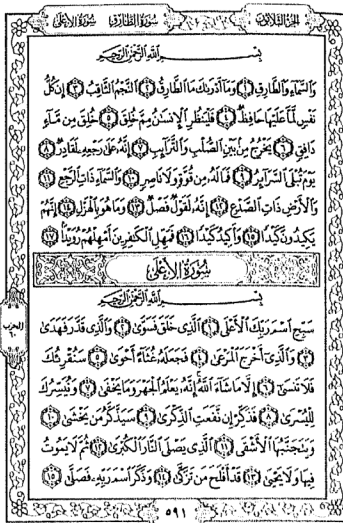 الجزء الثلاثون سورة الطارق سورة الأعلى
بسم الله الرحمن الرحيم
وَالسَّمَاءِ وَالطَّارِقِ ١ وَمَا أَدْرَىٰكَ مَا الطَّارِقُ ٢ النَّجْمُ الثَّاقِبُ ٣ إِن كُلُّ
نَفْسٍ لَّمَّا عَلَيْهَا حَافِظٌ ٤ فَلْيَنظُرِ الْإِنسَٰنُ مِمَّ خُلِقَ ٥ خُلِقَ مِن مَّاءٍ
دَافِقٍ ٦ يَخْرُجُ مِن بَيْنِ الصُّلْبِ وَالتَّرَائِبِ ٧ إِنَّهُ عَلَىٰ رَجْعِهِ لَقَادِرٌ ٨
يَوْمَ تُبْلَى السَّرَائِرُ ٩ فَمَا لَهُ مِن قُوَّةٍ وَلَا نَاصِرٍ ١٠ وَالسَّمَاءِ ذَاتِ الرَّجْعِ ١١
وَالْأَرْضِ ذَاتِ الصَّدْعِ ١٢ إِنَّهُ لَقَوْلٌ فَصْلٌ ١٣ وَمَا هُوَ بِالْهَزْلِ ١٤ إِنَّهُمْ
يَكِيدُونَ كَيْدًا ١٥ وَأَكِيدُ كَيْدًا ١٦ فَمَهِّلِ الْكَٰفِرِينَ أَمْهِلْهُمْ رُوَيْدًا ١٧
سورة الأعلى
بسم الله الرحمن الرحيم
سَبِّحِ اسْمَ رَبِّكَ الْأَعْلَى ١ الَّذِي خَلَقَ فَسَوَّىٰ ٢ وَالَّذِي قَدَّرَ فَهَدَىٰ
٣ وَالَّذِي أَخْرَجَ الْمَرْعَىٰ ٤ فَجَعَلَهُ غُثَاءً أَحْوَىٰ ٥ سَنُقْرِئُكَ
فَلَا تَنسَىٰ ٦ إِلَّا مَا شَاءَ اللَّهُ إِنَّهُ يَعْلَمُ الْجَهْرَ وَمَا يَخْفَىٰ ٧ وَنُيَسِّرُكَ
لِلْيُسْرَىٰ ٨ فَذَكِّرْ إِن نَّفَعَتِ الذِّكْرَىٰ ٩ سَيَذَّكَّرُ مَن يَخْشَىٰ ١٠
وَيَتَجَنَّبُهَا الْأَشْقَى ١١ الَّذِي يَصْلَى النَّارَ الْكُبْرَىٰ ١٢ ثُمَّ لَا يَمُوتُ
فِيهَا وَلَا يَحْيَىٰ ١٣ قَدْ أَفْلَحَ مَن تَزَكَّىٰ ١٤ وَذَكَرَ اسْمَ رَبِّهِ فَصَلَّىٰ ١٥
الحزب
٥٩١